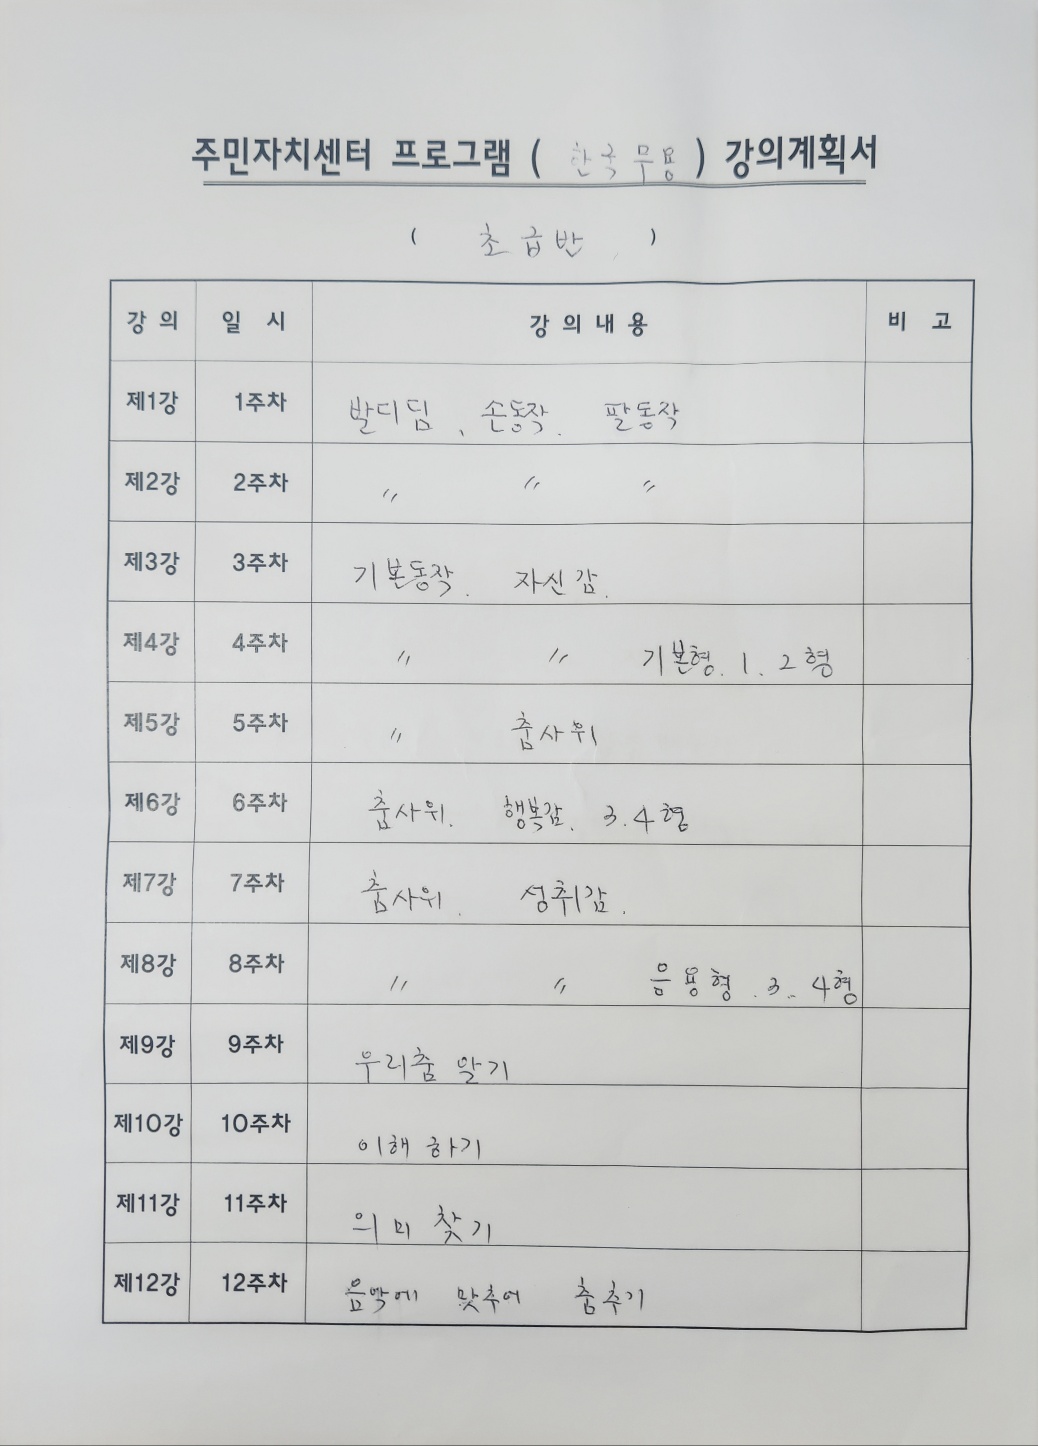 주민자치센터 프로그램 ( 한국무용 ) 강의계획서
( 초급반 )
강 의 일 시 강 의 내 용 비 고
제1강 1주차 발디딤, 손동작. 팔동작
제2강 2주차 〃 〃 〃
제3강 3주차 기본동작. 자신감.
제4강 4주차 〃 〃 기본형. 1. 2형
제5강 5주차 〃 춤사위
제6강 6주차 춤사위. 행복감. 3.4형
제7강 7주차 춤사위. 성취감.
제8강 8주차 〃 〃 응용형. 3.. 4형
제9강 9주차 우리춤 알기
제10강 10주차 이해 하기
제11강 11주차 의미 찾기
제12강 12주차 음악에 맞추어 춤추기